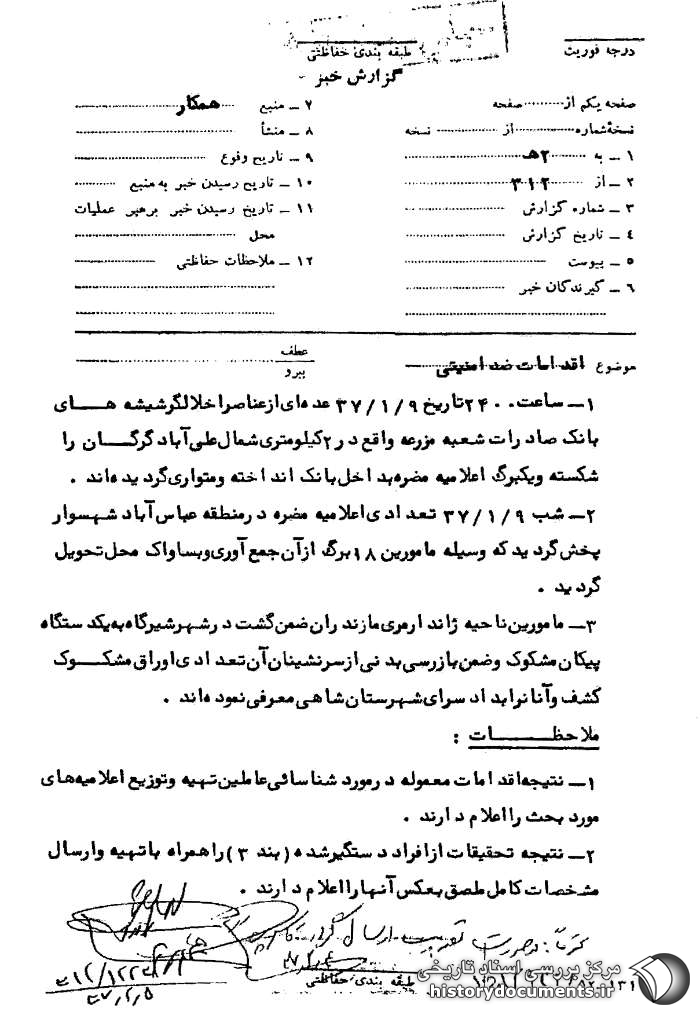 درجه فوریت
طبقه بندی حفاظتی
گزارش خبر
صفحه یکم از ........ صفحه
نسخهٔ شماره ........ از ........ نسخه
۱ ــ به ........ ۲هـ
۲ ــ از ........ ۳۱۲
۳ ــ شماره گزارش
۴ ــ تاریخ گزارش
۵ ــ پیوست
۶ ــ گیرندگان خبر
۷ ــ منبع همکار
۸ ــ منشأ
۹ ــ تاریخ وقوع
۱۰ ــ تاریخ رسیدن خبر به منبع
۱۱ ــ تاریخ رسیدن خبر برهبر عملیات
محل
۱۲ ــ ملاحظات حفاظتی
موضوع اقدامات ضد امنیتی
عطف
پیرو
۱ــ ساعت ۲۴۰۰ تاریخ ۳۷/۱/۹ عده‌ای از عناصر اخلالگر شیشه هـــای
بانک صادرات شعبه مزرعه واقع در ۲ کیلومتری شمال علی‌آباد گرگـــان را
شکسته و یکبرگ اعلامیه مضره بداخل بانک انداخته و متواری گردیده‌اند .
۲ــ شب ۳۷/۱/۹ تعدادی اعلامیه مضره در منطقه عباس‌آباد شهسوار
پخش گردید که وسیله مامورین ۱۸ برگ از آن جمع آوری و بساواک محل تحویل
گردید .
۳ــ مامورین ناحیه ژاندارمری مازندران ضمن گشت در شهر شیرگاه به یکدستگاه
پیکان مشکوک و ضمن بازرسی بدنی از سرنشینان آن تعدادی اوراق مشکـــوک
کشف و آنانرا بدادسرای شهرستان شاهی معرفی نموده‌اند .
ملاحظـــــات :
۱ــ نتیجه اقدامات معموله در مورد شناسائی عاملین تهیه و توزیع اعلامیه‌های
مورد بحث را اعلام دارند .
۲ــ نتیجه تحقیقات از افراد دستگیر شده (بند ۳) را همراه با تهیه و ارسال
مشخصات کامل ملصق بعکس آنها را اعلام دارند .
طبقه بندی حفاظتی
مرکز بررسی اسناد تاریخی
historydocuments.ir